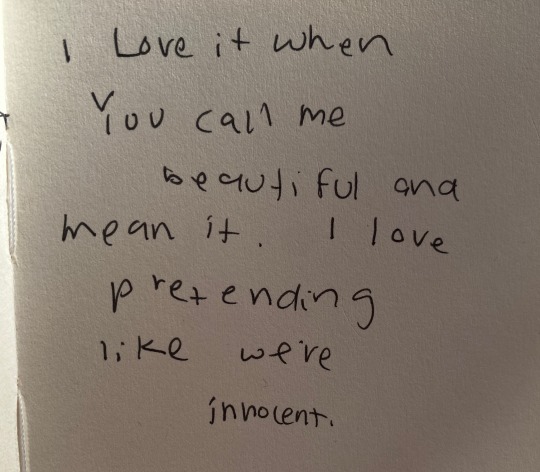 I Love it when
You call me
beautiful and
mean it. I love
pretending
like we're
innocent.